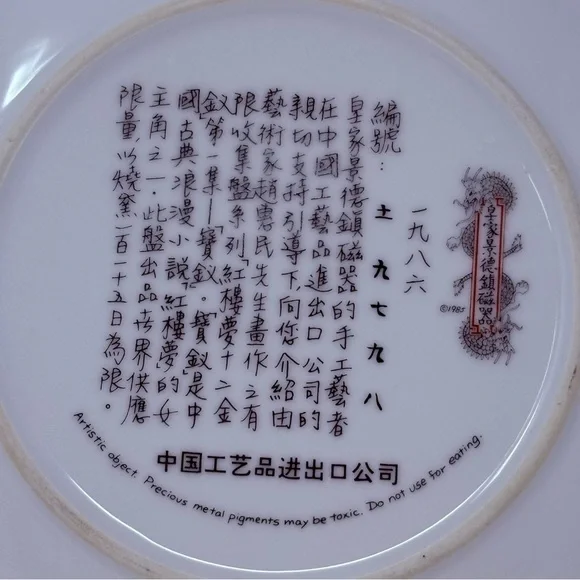 皇家景德鎮磁器
©1985
一九八六
編號：土九七九八
皇家景德鎮磁器的手工藝者
在中國工藝品進出口公司的
親切支持引導下,向您介紹由
藝術家趙惠民先生畫作之有
限收集盤系列「紅樓夢十二金
釵」第一集—「寶釵」。「寶釵」是中
國古典浪漫小說「紅樓夢」的女
主角之一.此盤出品世界供應
限量,以燒窯一百一十五日為限。
中国工艺品进出口公司
Artistic object. Precious metal pigments may be toxic. Do not use for eating.